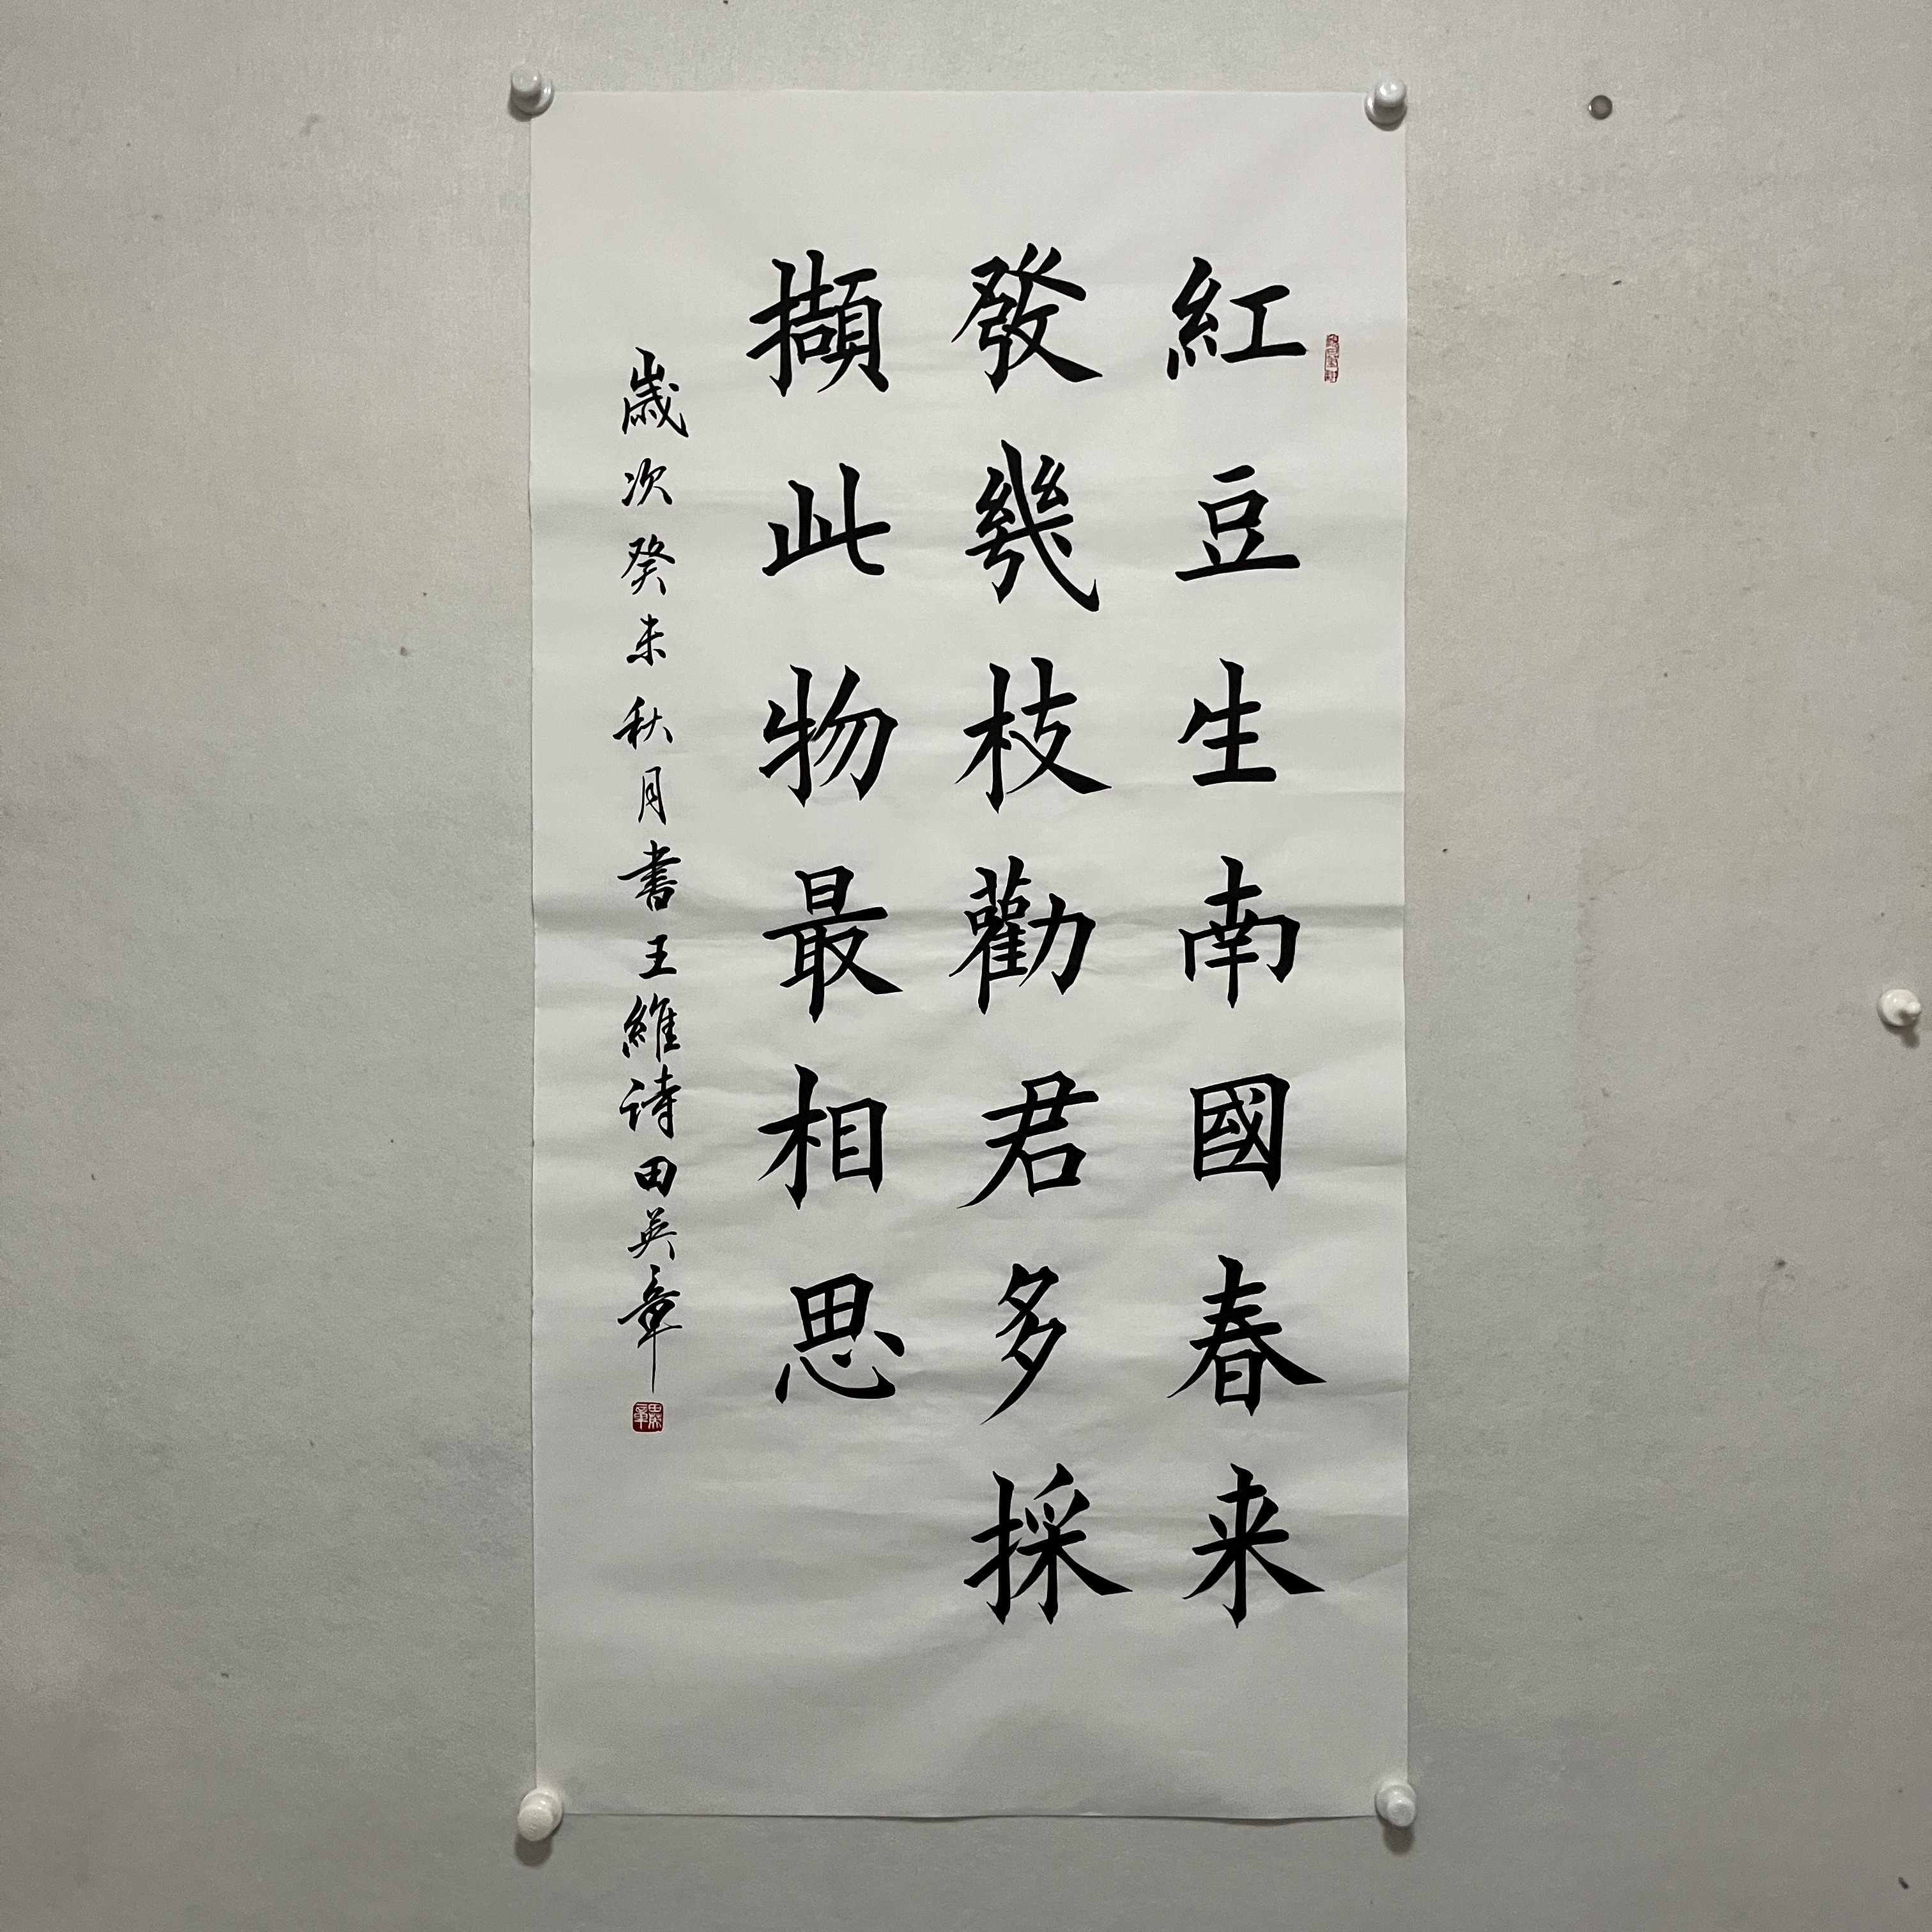 紅豆生南國春来
發幾枝勸君多採
擷此物最相思
歲次癸未秋月書王維诗田英章